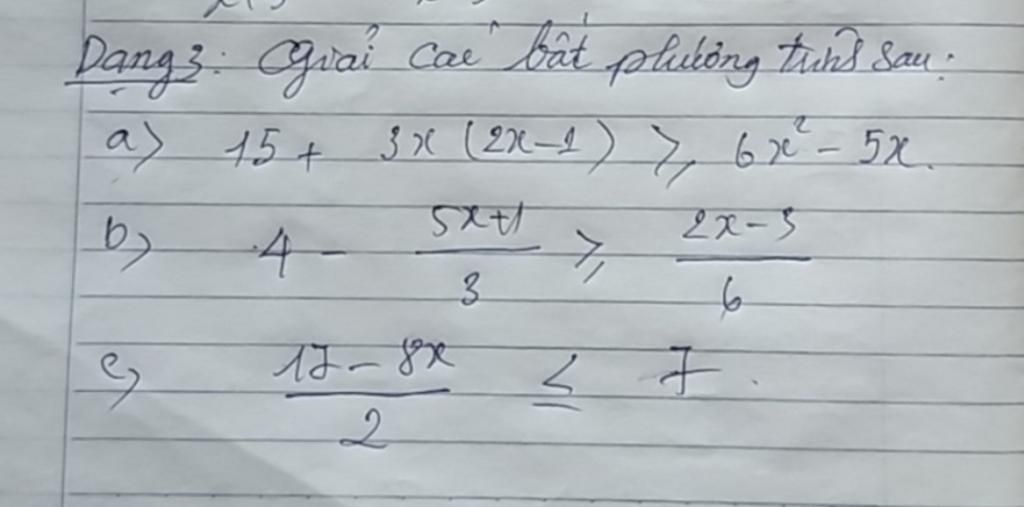 Dạng 3: Giải các bất phương trình sau:
a) 15 + 3x (2x-1) ≥ 6x² - 5x.
b) 4 - \frac{5x+1}{3} ≥ \frac{2x-3}{6}
c) \frac{17-8x}{2} ≤ 7.